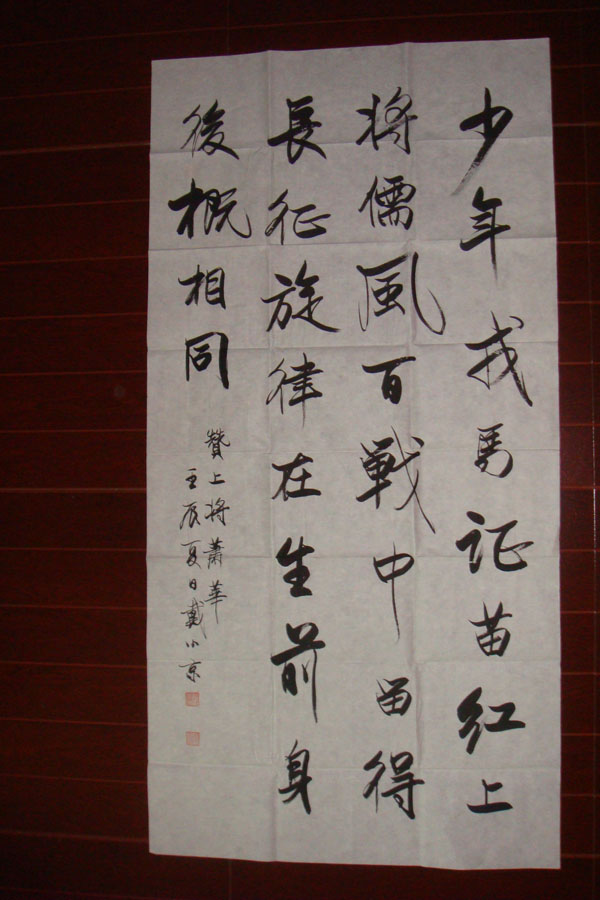 少年戎馬证苗红上
将儒風百戰中留得
長征旋律在生前身
後概相同
贊上将蕭華
壬辰夏日戴小京